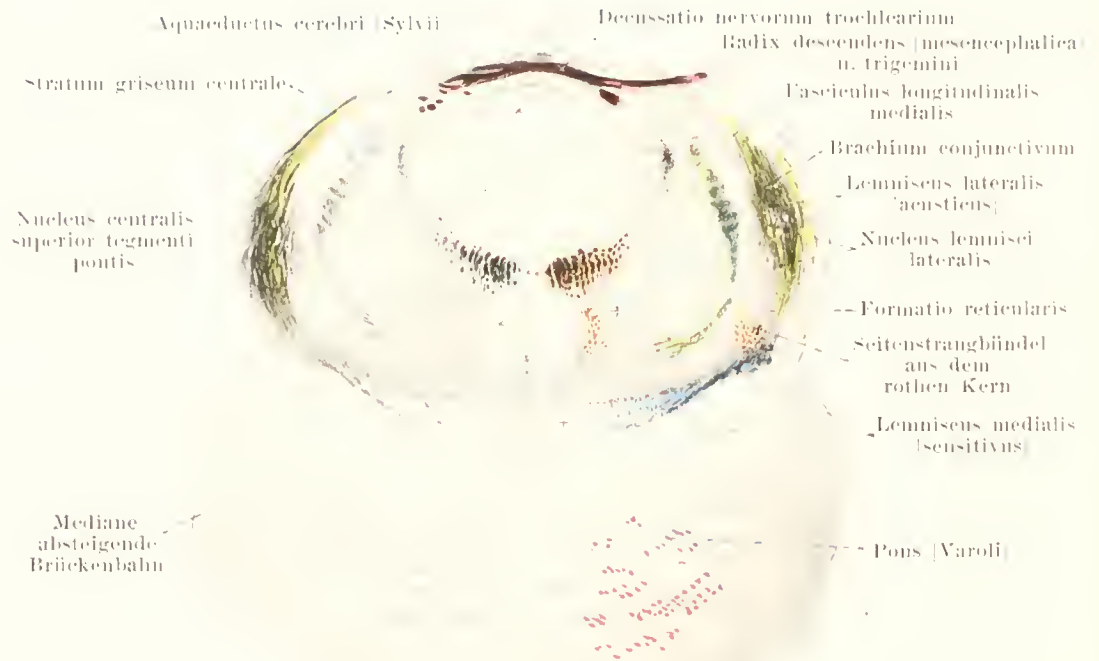 Aquaeductus cerebri [Sylvii
Decussatio nervorum trochlearium
Radix descendens [mesencephalica]
n. trigemini
Stratum griseum centrale
Fasciculus longitudinalis
medialis
Brachium conjunctivum
Lemniscus lateralis
[acusticus]
Nucleus centralis
superior tegmenti
pontis
Nucleus lemnisci
lateralis
Formatio reticularis
Seitenstrangbündel
aus dem
rothen Kern
Lemniscus medialis
[sensitivus]
Mediane
absteigende
Brückenbahn
Pons [Varoli]